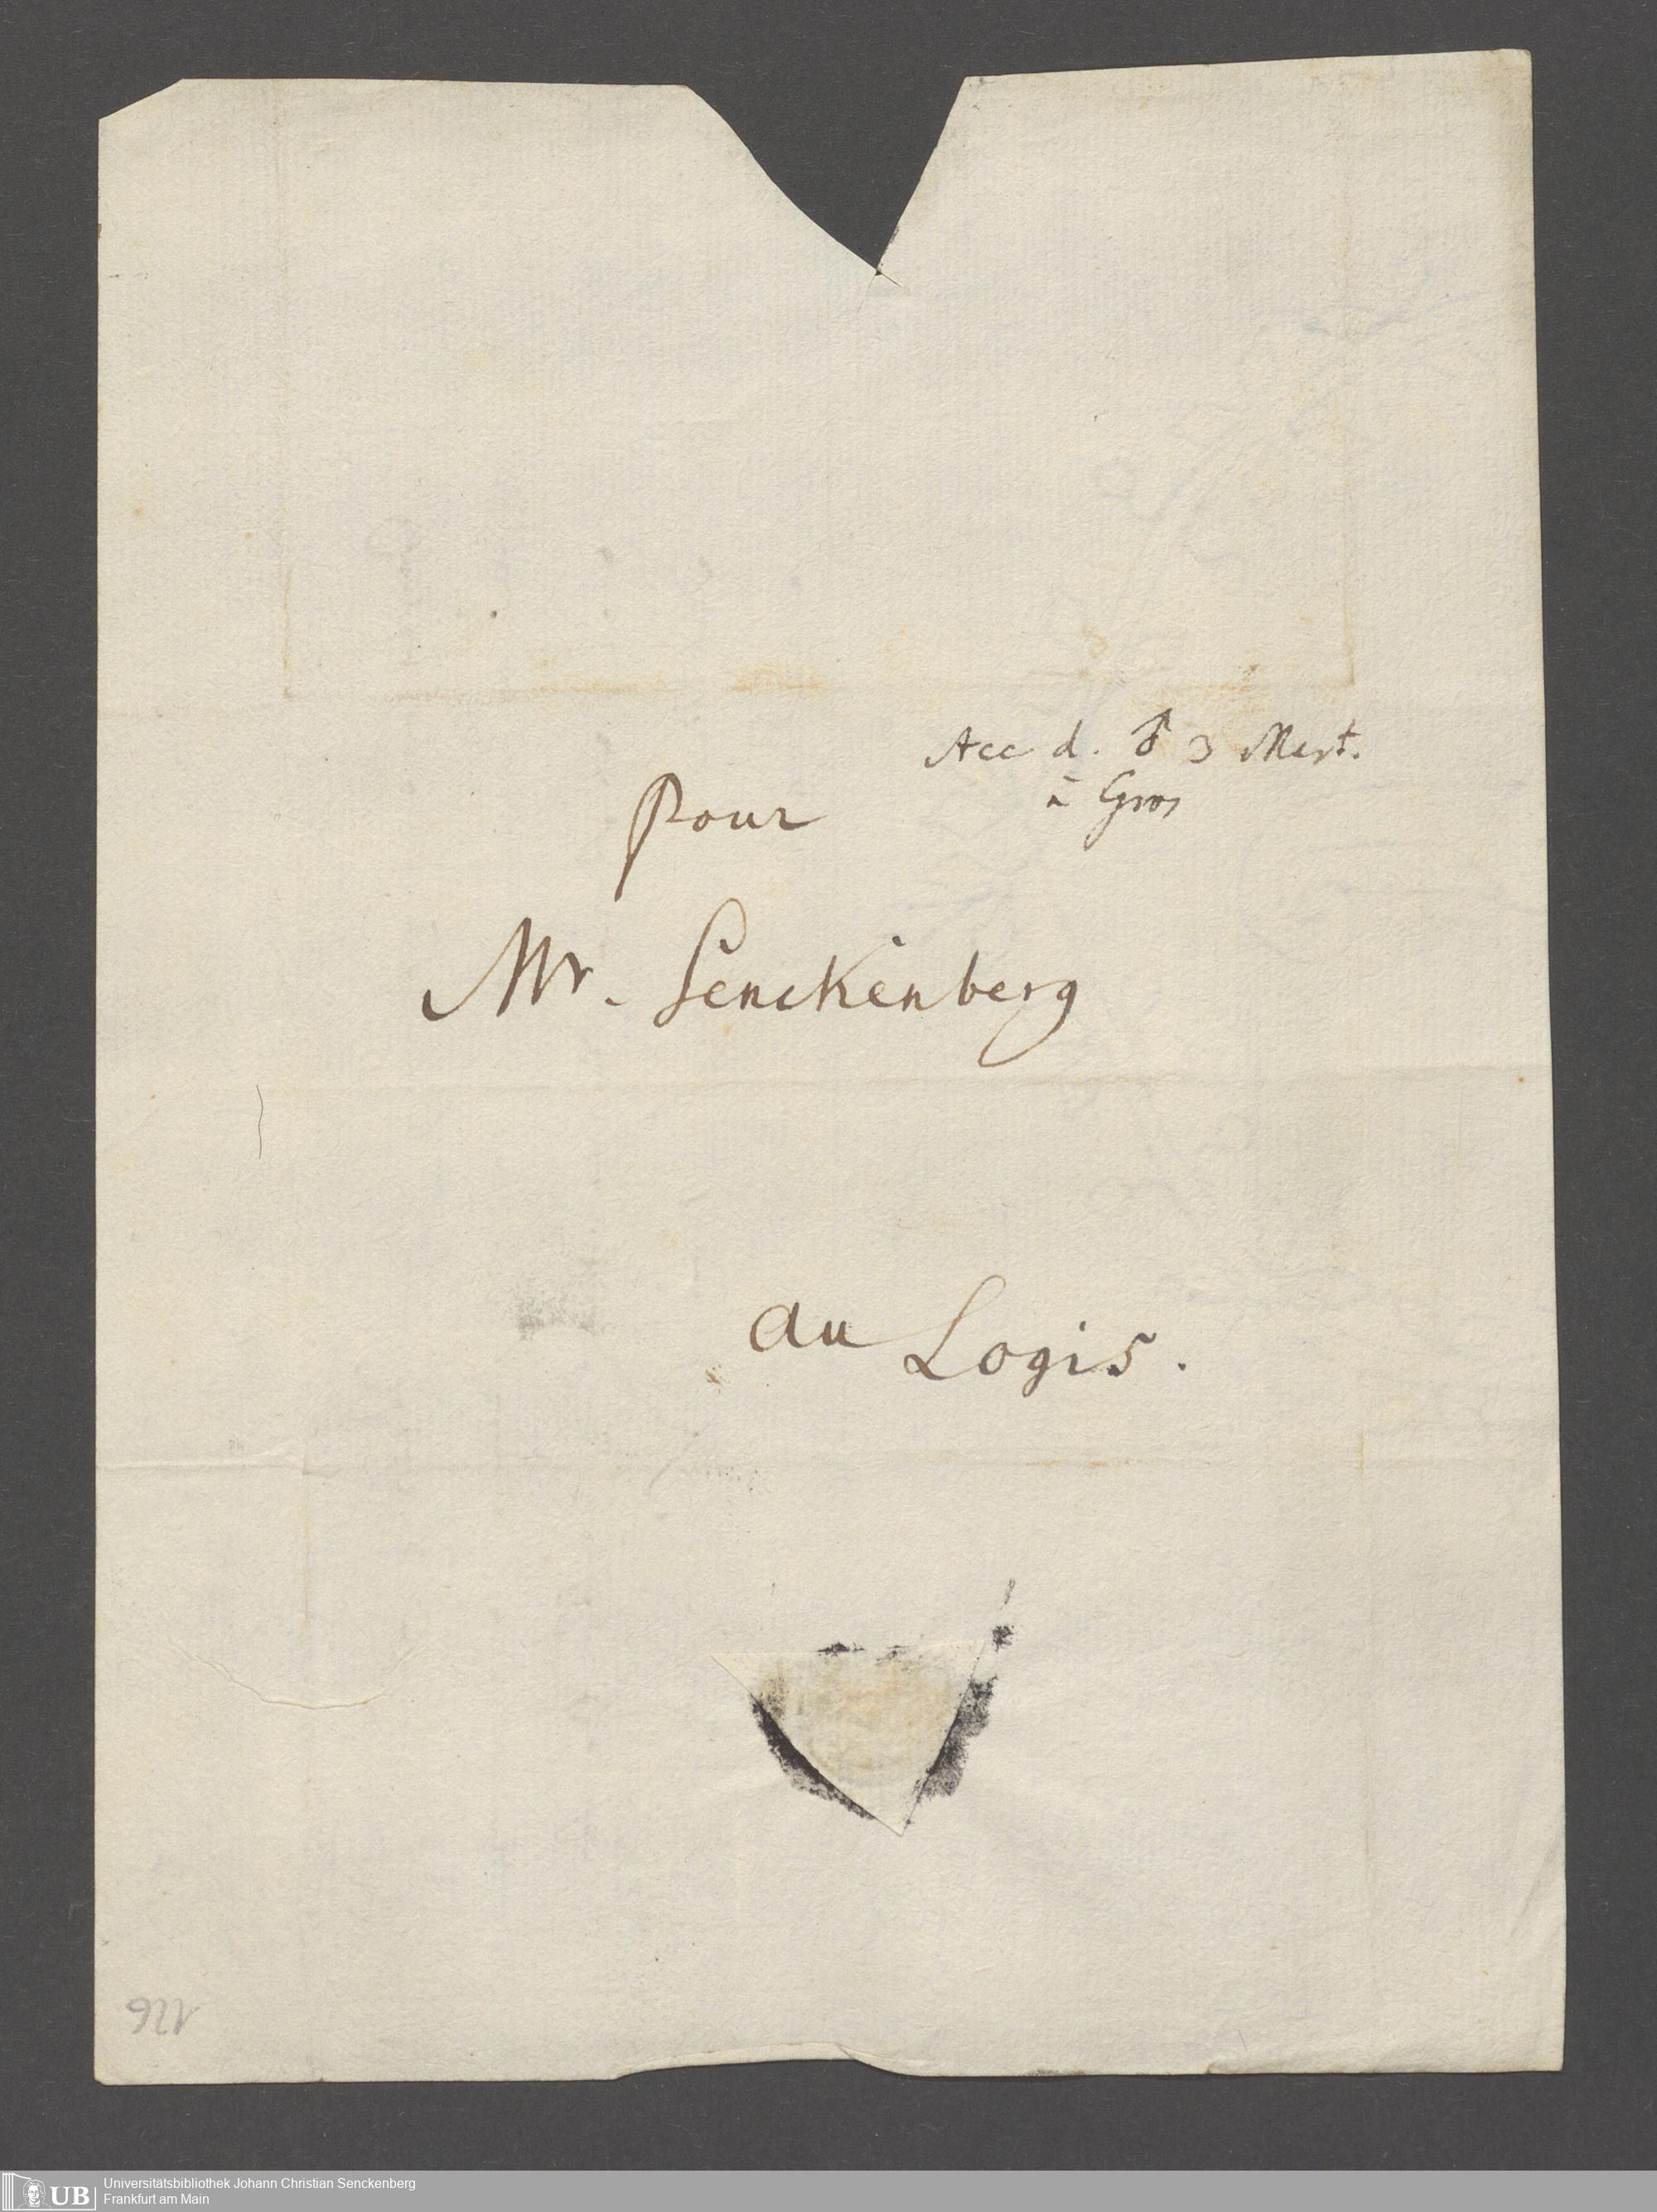 Acc d. ♂ 3 Mart.
à Gros
Pour
Mr. Senckenberg
au Logis.
126
UB Universitätsbibliothek Johann Christian Senckenberg
Frankfurt am Main